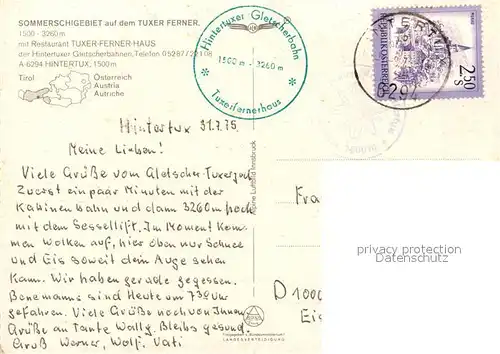 SOMMERSCHIGEBIET auf dem TUXER FERNER.
1500 - 3260m
mit Restaurant TUXER-FERNER-HAUS
der Hintertuxer Gletscherbahnen, Telefon 05287/
A-6294 HINTERTUX, 1500m
Tirol
Österreich
Austria
Autriche
Hintertuxer Gletscherbahn
1500 m - 3260 m
Tuxerfernerhaus
REPUBLIK ÖSTERREICH
2.50
S
Hintertux 31.7.75
Meine Lieben!
Viele Grüße vom Gletscher-Tuxerjoch
Zuerst ein paar Minuten mit der
Kabinenbahn und dann 3260m hoch
mit dem Sessellift. Im Moment kom-
men Wolken auf, hier oben nur Schnee
und Eis soweit dein Auge sehen
kann. Wir haben gerade gegessen.
sind Heute um 7 30 Uhr
gefahren. Viele Grüße noch von
Grüße an Tante Wally. Bleibs gesund
Gruß Werner, Wolf. Vati
Alpine Luftbild Innsbruck
LANDESVERTEIDIGUNG
Fra
D 1000
Eis
physical copyright protection
Datenschutz